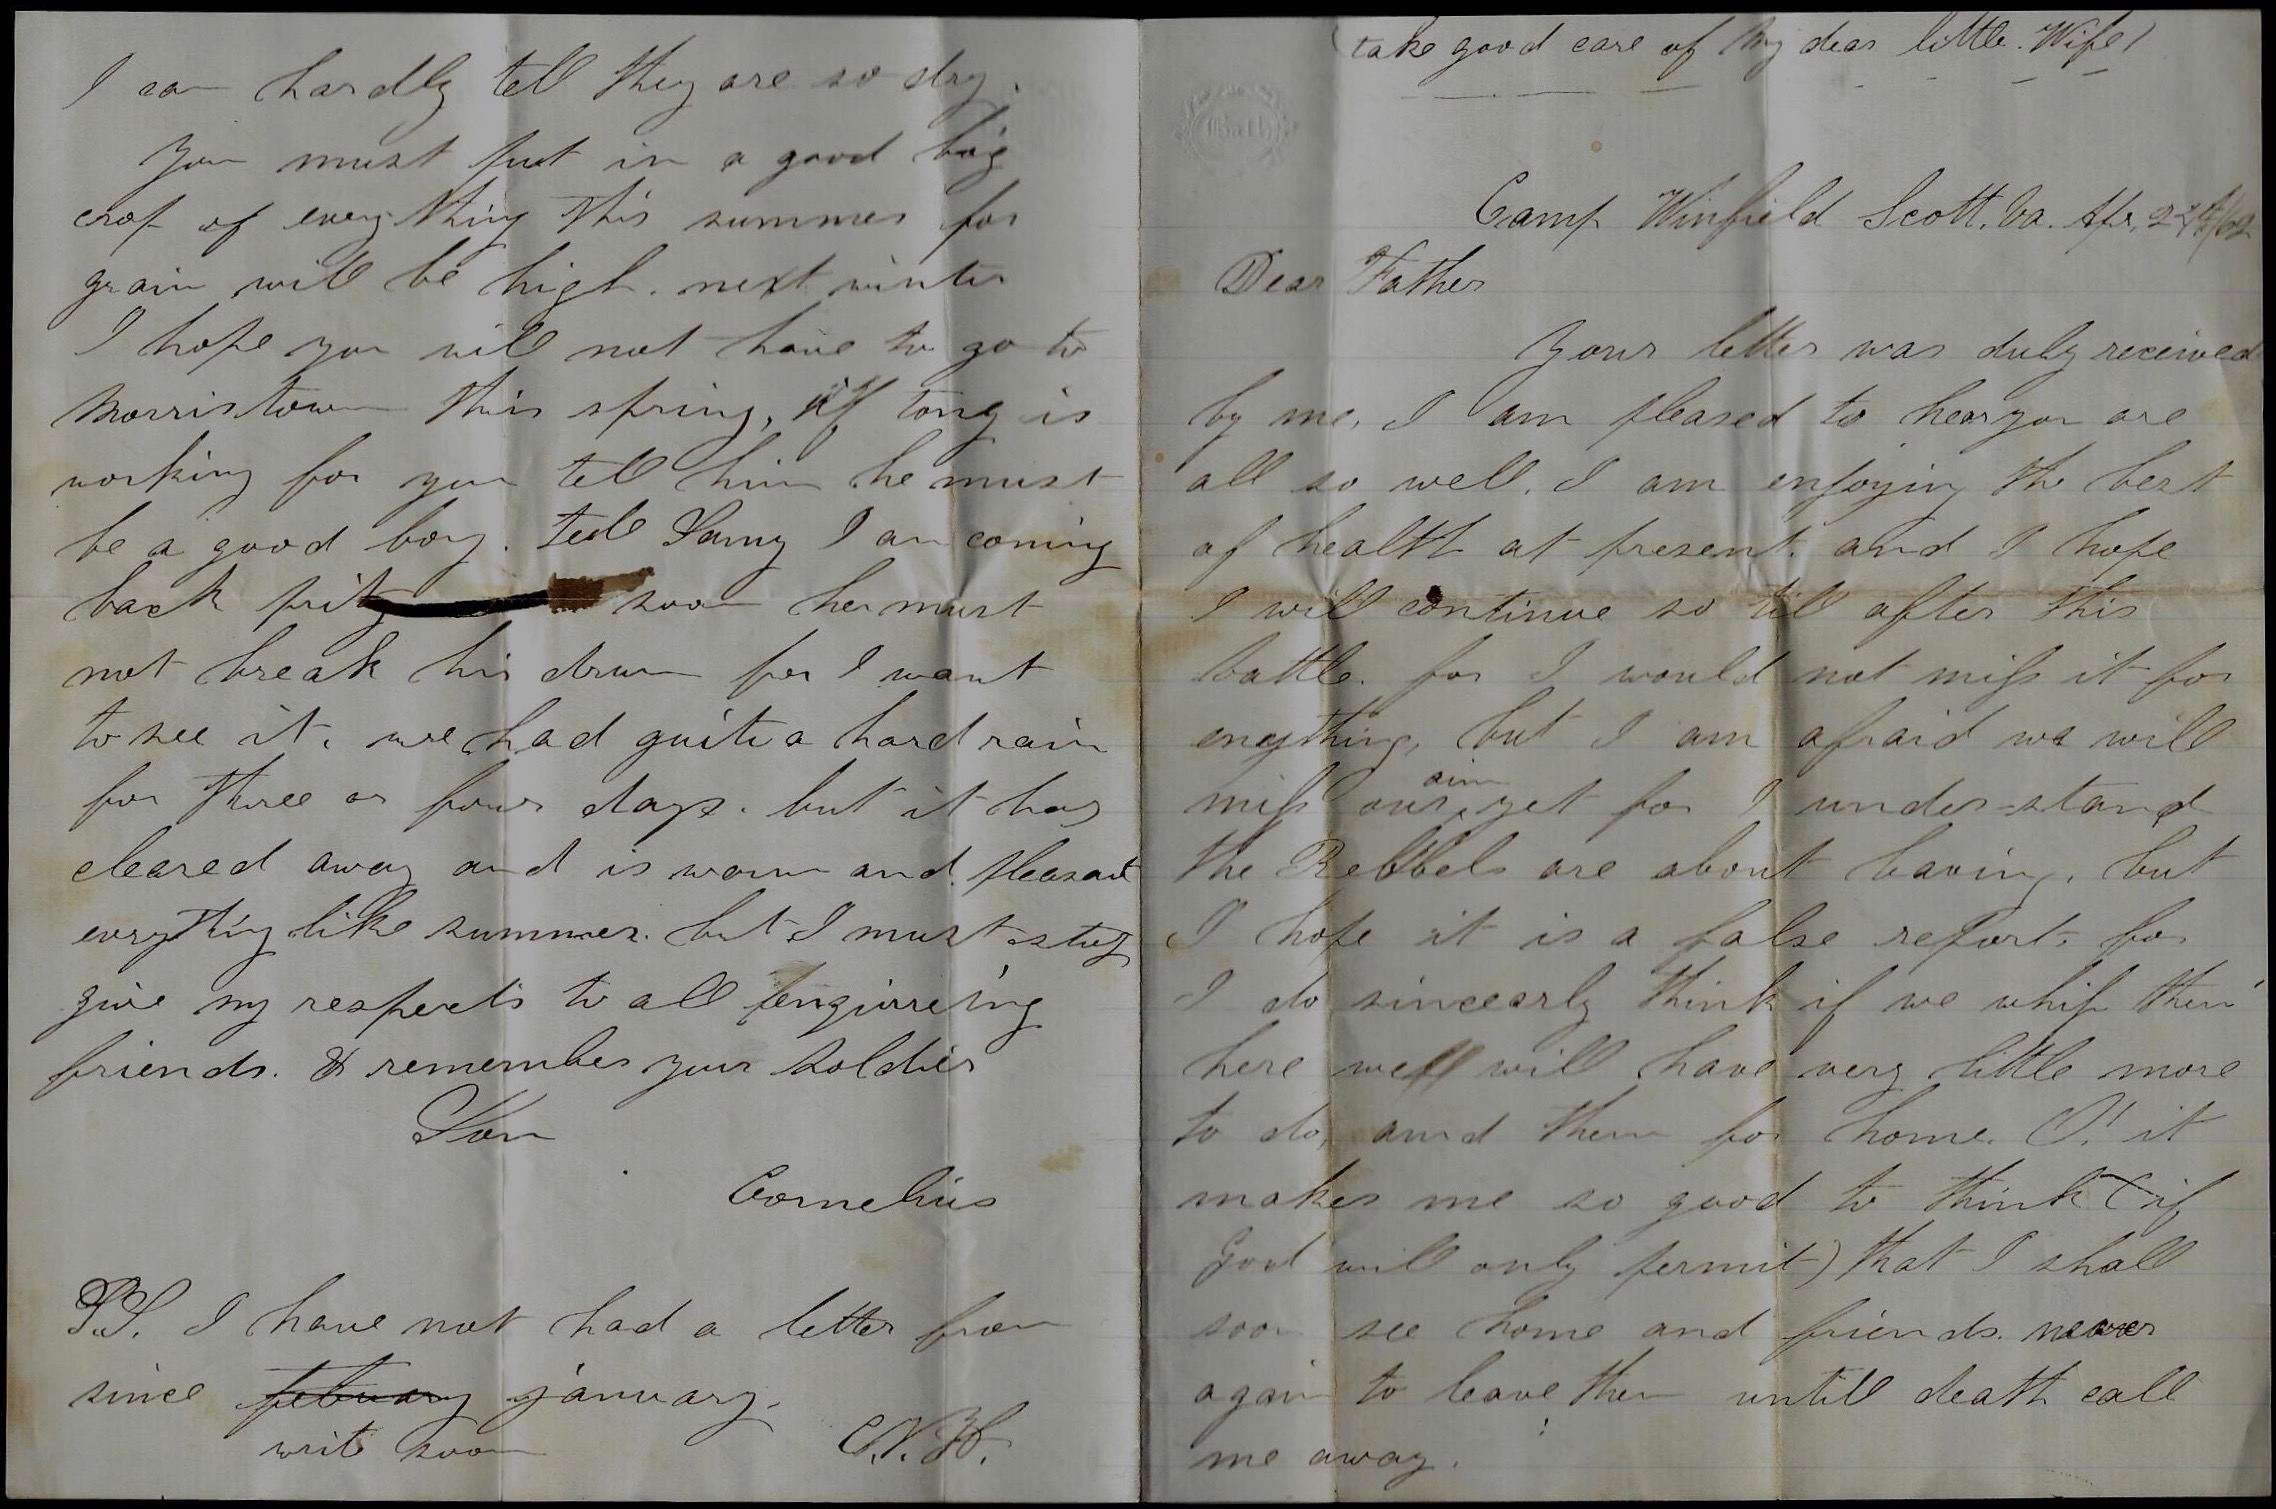 (take good care of my dear little Wife)
Bath
Camp Winfield Scott. Va. Apr, 24/62
Dear Father
Your letter was duly received
by me, I am pleased to hear you are
all so well. I am enjoying the best
of health at present. and I hope
I will continue so till after this
battle. for I would not miss it for
enything, but I am afraid we will
miss our aim yet for I under-stand
the Rebbels are about leaving, but
I hope it is a false report. for
I do sinceerly think if we whip them
here we will have very little more
to do, and then for home. O! it
makes me so good to think (if
God will only permit) that I shall
soon see home and friends. never
again to leave them untill death call
me away.
I can hardly tell they are so dry.
You must put in a good big
crop of every thing this summer for
grain will be high. next winter
I hope you will not have to go to
Morristown this spring, if tony is
working for you tell him he must
be a good boy. tell Samy I am coming
back soon he must
not break his drum for I want
to see it. we had quite a hard rain
for three or four days. but it has
cleared away and is warm and pleasant
everything like summer. but I must stop
give my respects to all
friends. & remember your soldier
Son
Cornelius
P.S. I have not had a letter from
since febuary january.
writ soon C.V.H.